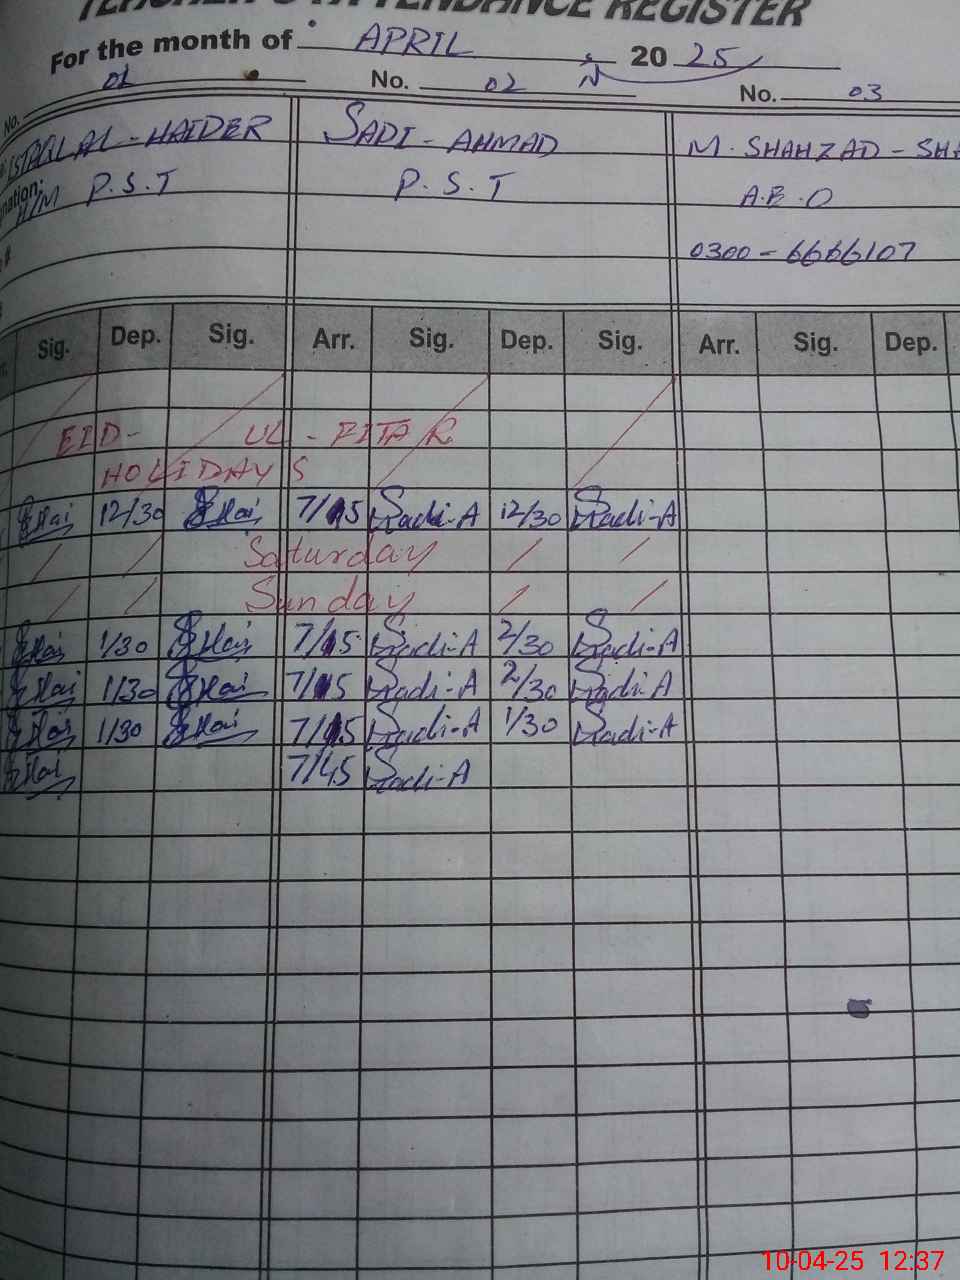 TEACHER'S ATTENDANCE REGISTER
For the month of APRIL 2025
No. 01 No. 02 No. 03
HAIDER SADI - AHMAD M. SHAHZAD - SHA
H/M P.S.T P.S.T A.E.O
0300 - 6666107
Sig. Dep. Sig. Arr. Sig. Dep. Sig. Arr. Sig. Dep.
EID - UL - FITAR
HOLIDAYS
SHai 12/30 SHai 7/45 Sadi-A 12/30 Sadi-A
Saturday
Sunday
SHai 1/30 SHai 7/45 Sadi-A 2/30 Sadi-A
SHai 1/30 SHai 7/45 Sadi-A 2/30 Sadi-A
SHai 1/30 SHai 7/45 Sadi-A 1/30 Sadi-A
SHai 7/45 Sadi-A
10-04-25 12:37